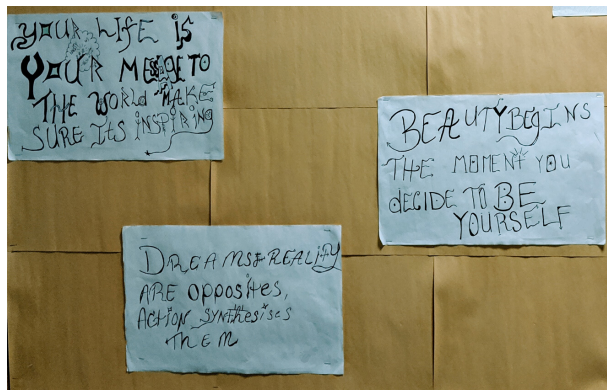 YOUR LIFE IS
YOUR MESSAGE TO
THE WORLD MAKE
SURE ITS INSPIRING
BEAUTY BEGINS
THE MOMENT YOU
DECIDE TO BE
YOURSELF
DREAMS & REALITY
ARE OPPOSITES,
ACTION SYNTHESISES
THEM